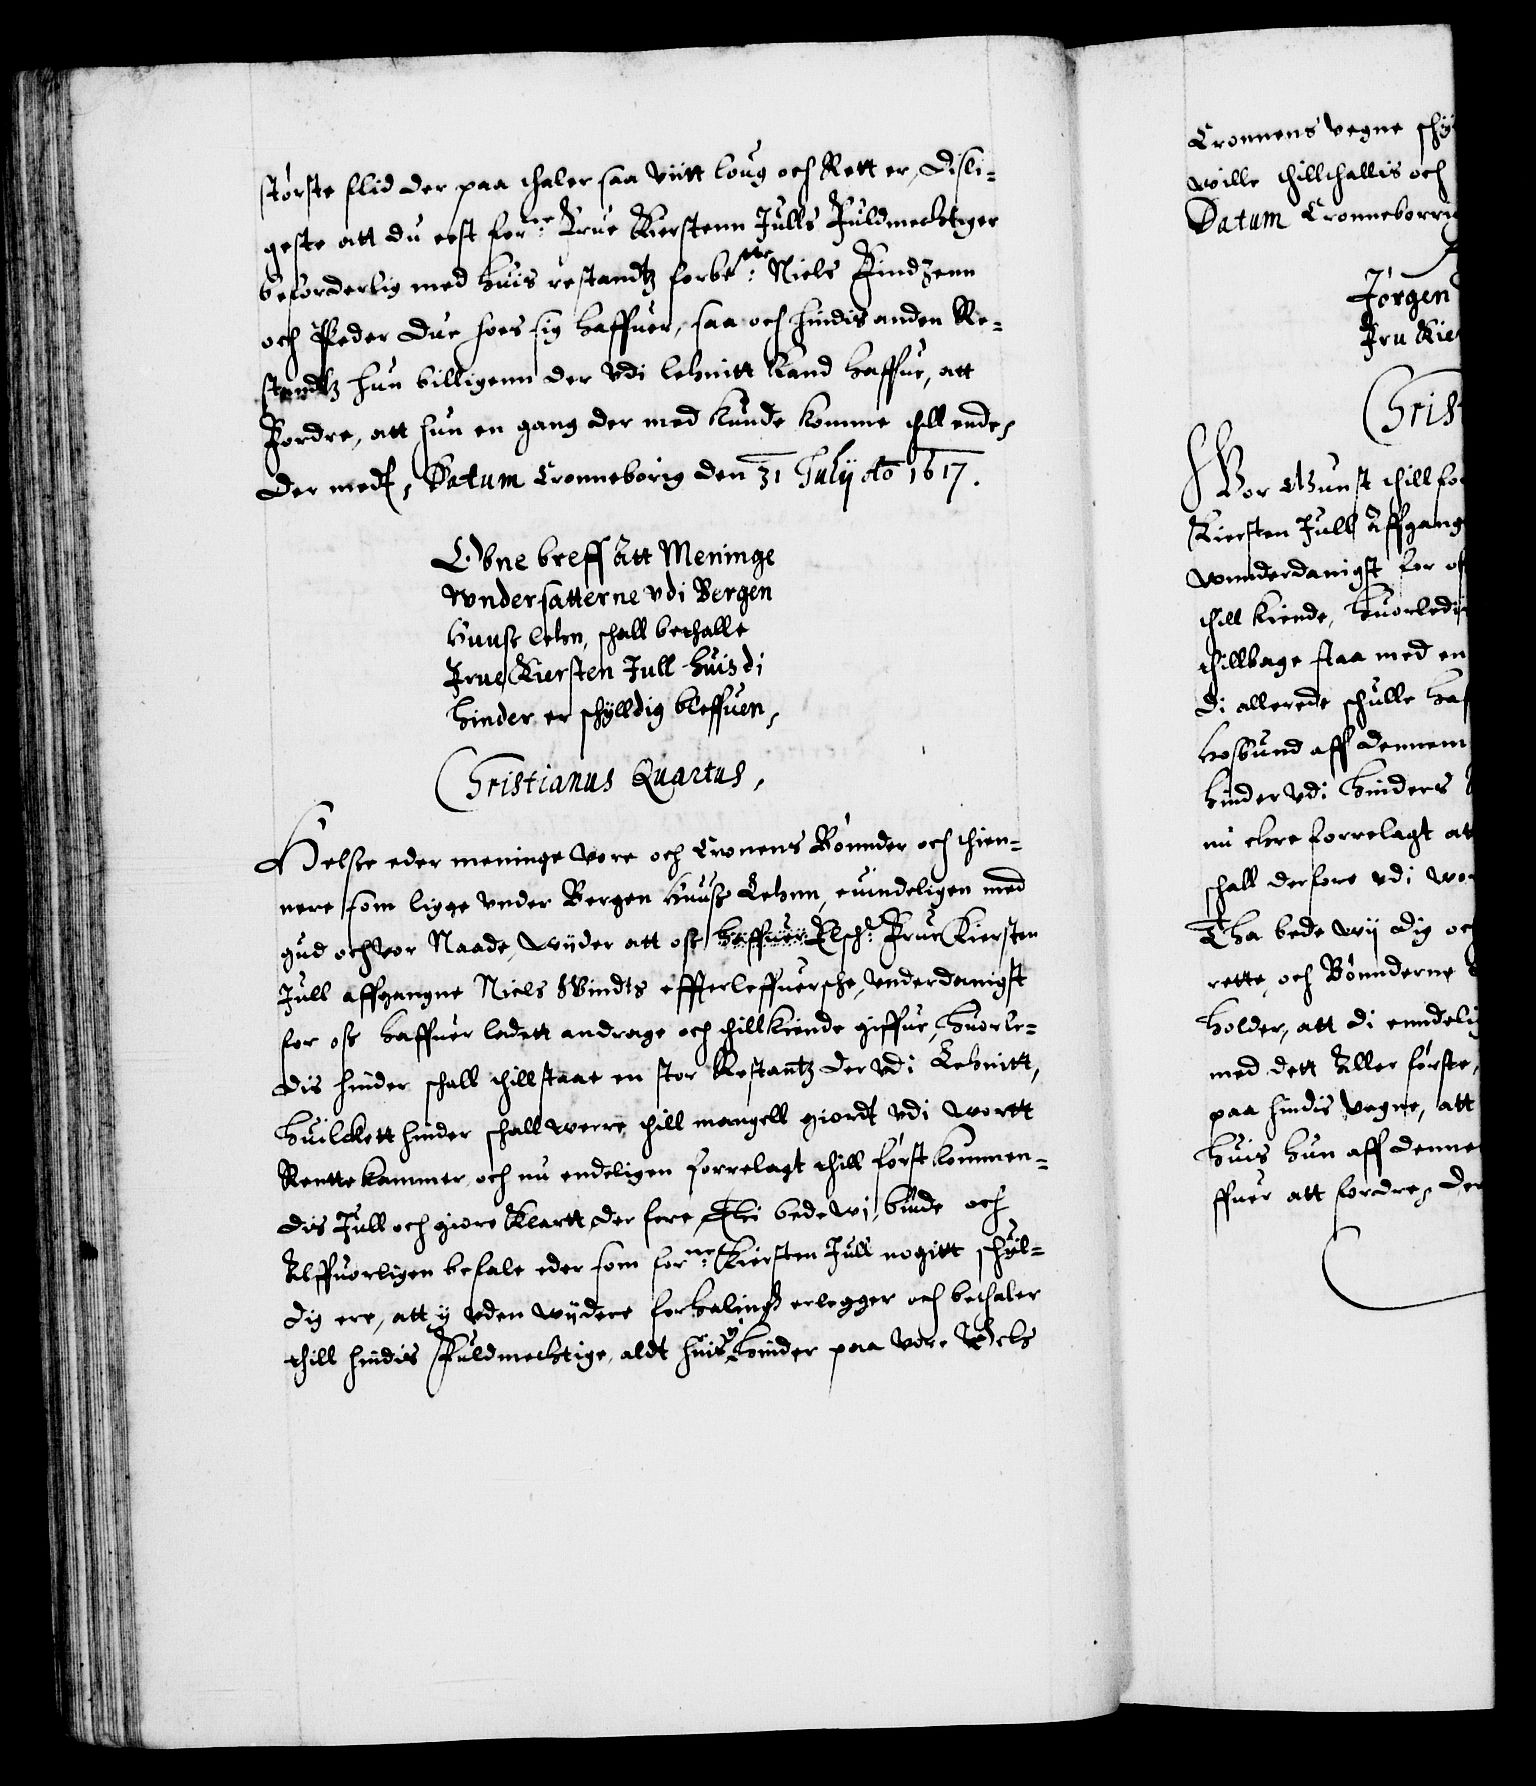 største flid der paa thaler saa viitt loug och Rett er, disli-
geste att du est forne: Frue Kierstenn Julls Fuldmechtiger
beforderlig med huis restandtz forbete: Niels Findzenn
och Peder Due hoes sig haffuer, saa och hindis anden Re-
standtz hun billigenn der vdi lehnitt kand haffue, att
Fordre, att hun en gang der med kunde komme thill ende,
Der med, Datum Cronneborig den 31 Julij Ao 1617.
Obne breff att Meninge
wndersatterne vdi Bergen
Huus lehn, schall bethalle
Frue Kiersten Jull huis di
hinder er schylldig bleffuen,
Christianus Quartus,
Helse eder meninge vore och Cronens Bønnder och thien-
nere som ligge vnder Bergen huus Lehnn, euindeligen med
gud och vor Naade, wyder att oss haffuer Elsch: Frue Kiersten
Jull affgangne Niels Windts effterleffuersche, vnderdanigst
for oss haffuer ladett andrage och thillkiende giffue, huorle-
dis hinder schall thillstaae en stor Restantz der vdi Lehnitt,
huilckett hinder schall were thill mangell giordt vdi wortt
Rentte kammer och nu endeligen forrelagt thill først kommen-
dis Jull och giøre Klartt der fore, Thi bede wi, biude och
Alffuorligen befale eder som forne: Kiersten Jull nogitt schyl-
dig ere, att y vden wydere forhaling erlegger och bethaler
thill hindis Fuldmechtige, aldt huis y hinder paa vore och
Cronnens vegne schy
wille thillthallis och
Datum Cronneborrig
Jørgen
Fru Kie
Christ
Wor Gunst thill for
Kiersten Jull Affgang
wnnderdanigst for os
thill kiende, huorledis
thillbage staa med en
di allerede schulle haf
hosbund aff dennem
hinder vdi hinders
nu ehre forrelagt at
schall derfore vdi wor
Tha bede wij dig och
rette, och Bønnderne
holder, att di enndelig
med dett Aller første,
paa hindis vegne, att
huis hun aff denne
ffuer att fordre, Der